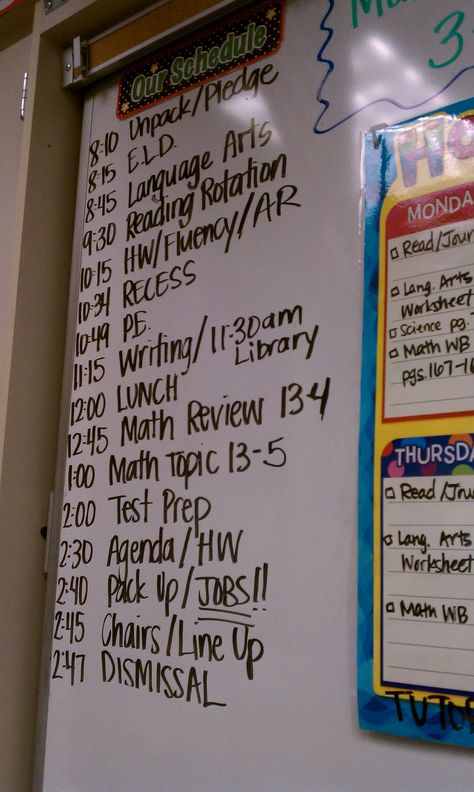 Our Schedule
8:10 Unpack/Pledge
8:15 E.L.D.
8:45 Language Arts
9:30 Reading Rotation
10:15 HW/Fluency/AR
10:34 RECESS
10:49 PE.
11:15 Writing/11:30am
Library
12:00 LUNCH
12:45 Math Review 13-4
1:00 Math Topic 13-5
2:00 Test Prep
2:30 Agenda/HW
2:40 Pack Up/JOBS!!
2:45 Chairs/Line Up
2:47 DISMISSAL
MONDA
Read/Jour
Lang. Arts
Worksheet
Science pg.
Math WB
pgs. 167-16
THURSDA
Read/Jou
Lang. Arts
Worksheet
Math WB